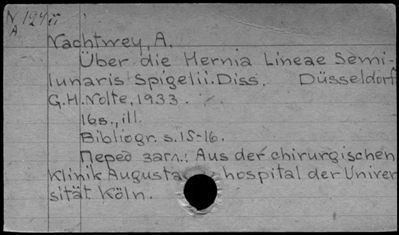 N 1247
A
Nachtwey, A.
Über die Hernia Lineae Semi-
lunaris Spigelii. Diss. Düsseldorf
G.H. Nolte, 1933.
16s., ill.
Bibliogr. s.15-16.
Перед загл.: Aus der chirurgischen
Klinik Augusta hospital der Univer
sität Köln.